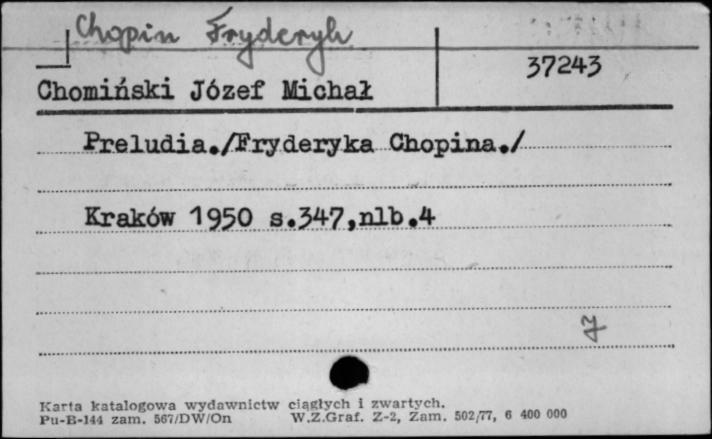 Chopin Fryderyk
37243
Chomiński Józef Michał
Preludia./Fryderyka Chopina./
Kraków 1950 s.347,nlb.4
7
Karta katalogowa wydawnictw ciągłych i zwartych.
Pu-B-144 zam. 567/DW/On W.Z.Graf. Z-2, Zam. 502/77, 6 400 000